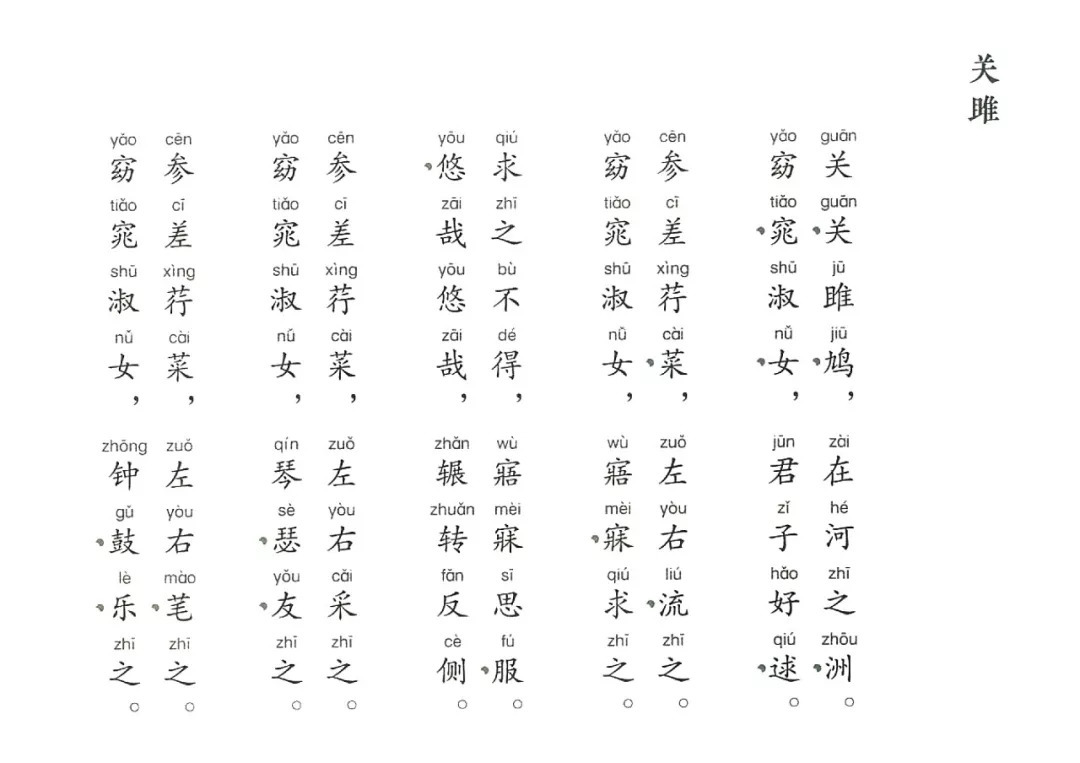 关雎
guān guān jū jiū zài hé zhī zhōu
关关雎鸠，在河之洲。
yǎo tiǎo shū nǚ jūn zǐ hǎo qiú
窈窕淑女，君子好逑。
cēn cī xìng cài zuǒ yòu liú zhī
参差荇菜，左右流之。
yǎo tiǎo shū nǚ wù mèi qiú zhī
窈窕淑女，寤寐求之。
qiú zhī bù dé wù mèi sī fú
求之不得，寤寐思服。
yōu zāi yōu zāi zhǎn zhuǎn fǎn cè
悠哉悠哉，辗转反侧。
cēn cī xìng cài zuǒ yòu cǎi zhī
参差荇菜，左右采之。
yǎo tiǎo shū nǚ qín sè yǒu zhī
窈窕淑女，琴瑟友之。
cēn cī xìng cài zuǒ yòu mào zhī
参差荇菜，左右芼之。
yǎo tiǎo shū nǚ zhōng gǔ lè zhī
窈窕淑女，钟鼓乐之。